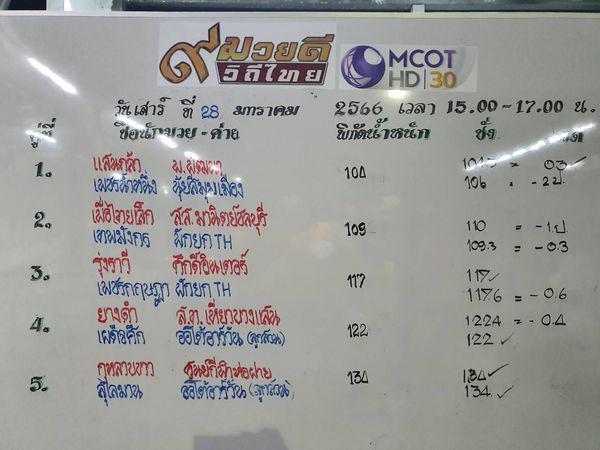 ๙มวยดี
วิถีไทย
MCOT
HD 30
วันเสาร์ ที่ 28 มกราคม 2566 เวลา 15.00-17.00 น.
คู่ที่ ชื่อนักมวย - ค่าย พิกัดน้ำหนัก ชั่ง
1. แสนกล้า 104
เพชรน้ำหนึ่ง 106 = -2ป.
2. ส.ส.มานิตย์ชลบุรี 109 110 = -1.ป
เทพมังกร ผักยก TH 109.3 = -0.3
3. รุ่งราวี ศักดิ์อินเตอร์ 117 117✓
เพชรกฤษฎา ผักยก TH 117.6 = -0.6
4. ยางดำ ส.ท.เที่ยวบางแสน 122 122.4 = -0.4
เผด็จศึก ออโต้อาร์วัน (ลูกสวน) 122 ✓
5. กุหลาบขาว 134 134✓
สุไลมาน ออโต้อาร์วัน (ลูกสวน) 134 ✓